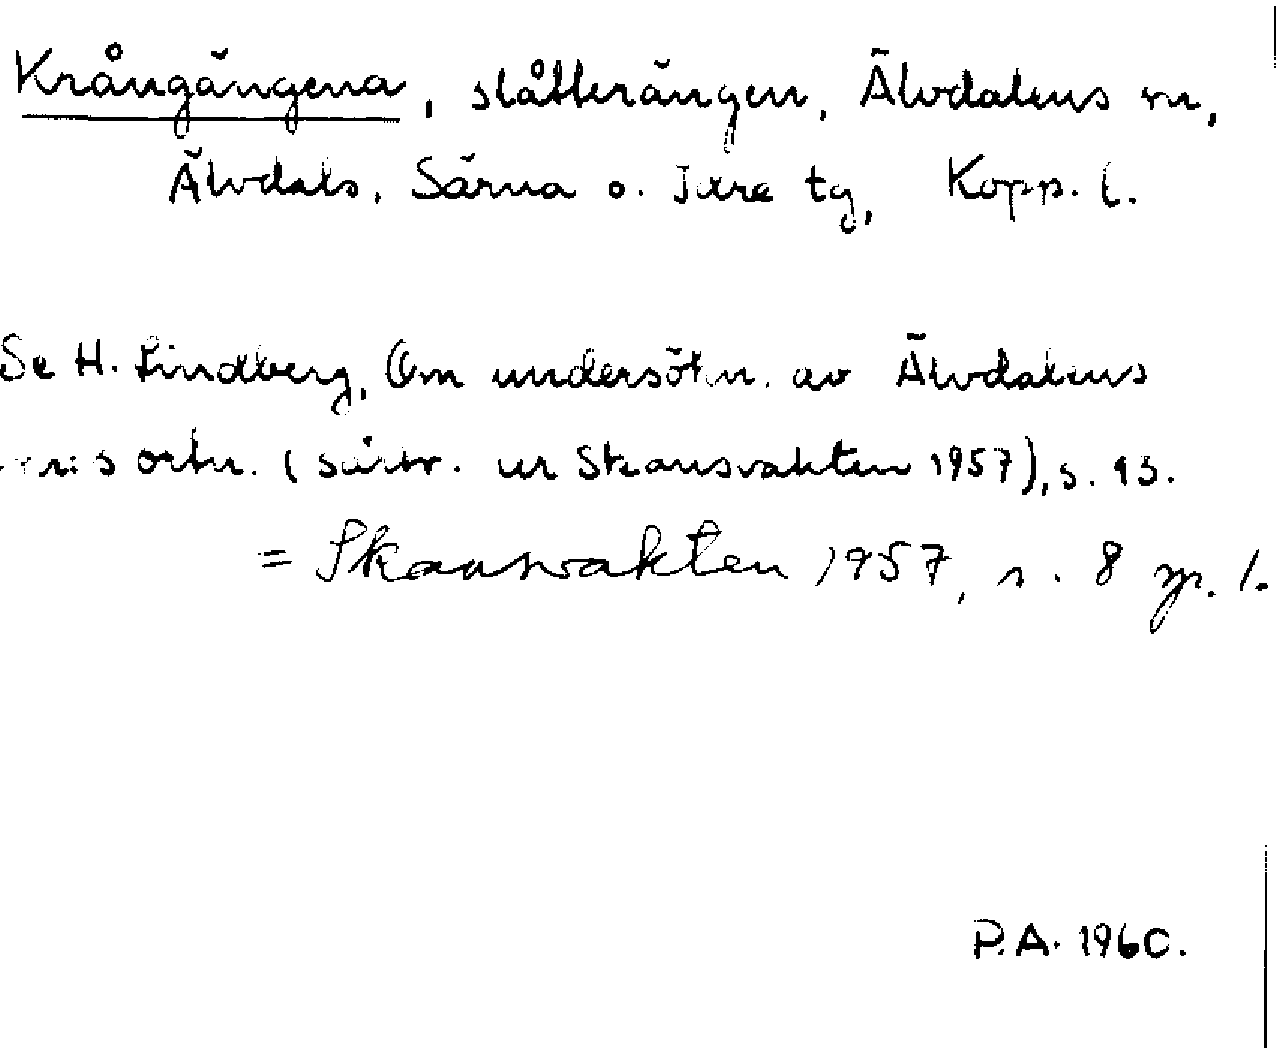 Krångängena, slåtterängen, Älvdalens sn,
Älvdals, Särna o. Idre tg, Kopp. l.
Se H. Lindberg, Om undersökn. av Älvdalens
ortn. (särtr. ur Skansvakten 1957), s. 13.
= Skansvakten 1957, s. 8 sp. 1.
P.A. 1960.